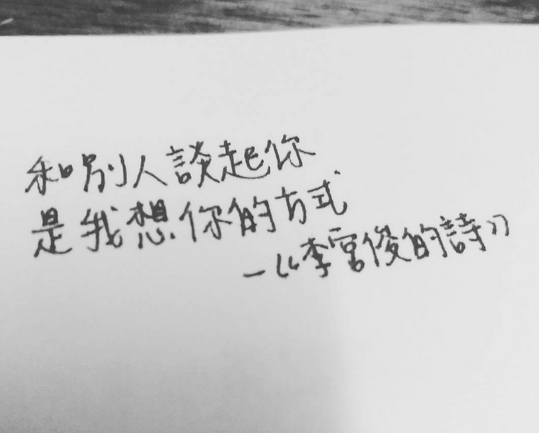 和別人談起你
是我想你的方式
—《李宮俊的詩》